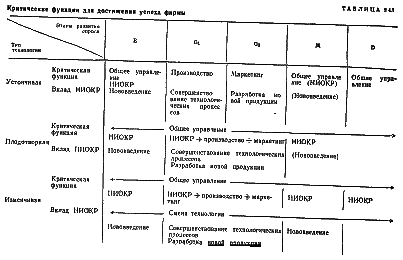 Критические функции для достижения успеха фирмы
ТАБЛИЦА
Этапы развития спроса
Тип технологии
E G₁ G₂ M D
Устойчивая
Критическая функция
Общее управление НИОКР
Производство
Маркетинг
Общее управление (НИОКР)
Общее управление
Вклад НИОКР
Нововведение
Совершенствование технологических процессов
Разработка новой продукции
(Нововведение)
Плодотворная
Критическая функция
Общее управление
НИОКР
НИОКР → производство → маркетинг
НИОКР
Вклад НИОКР
Нововведение
Совершенствование технологических процессов
Разработка новой продукции
(Нововведение)
Изменчивая
Критическая функция
Общее управление
НИОКР
НИОКР → производство → маркетинг
НИОКР
НИОКР
Вклад НИОКР
Смена технологии
Нововведение
Совершенствование технологических процессов
Разработка новой продукции
Нововведение